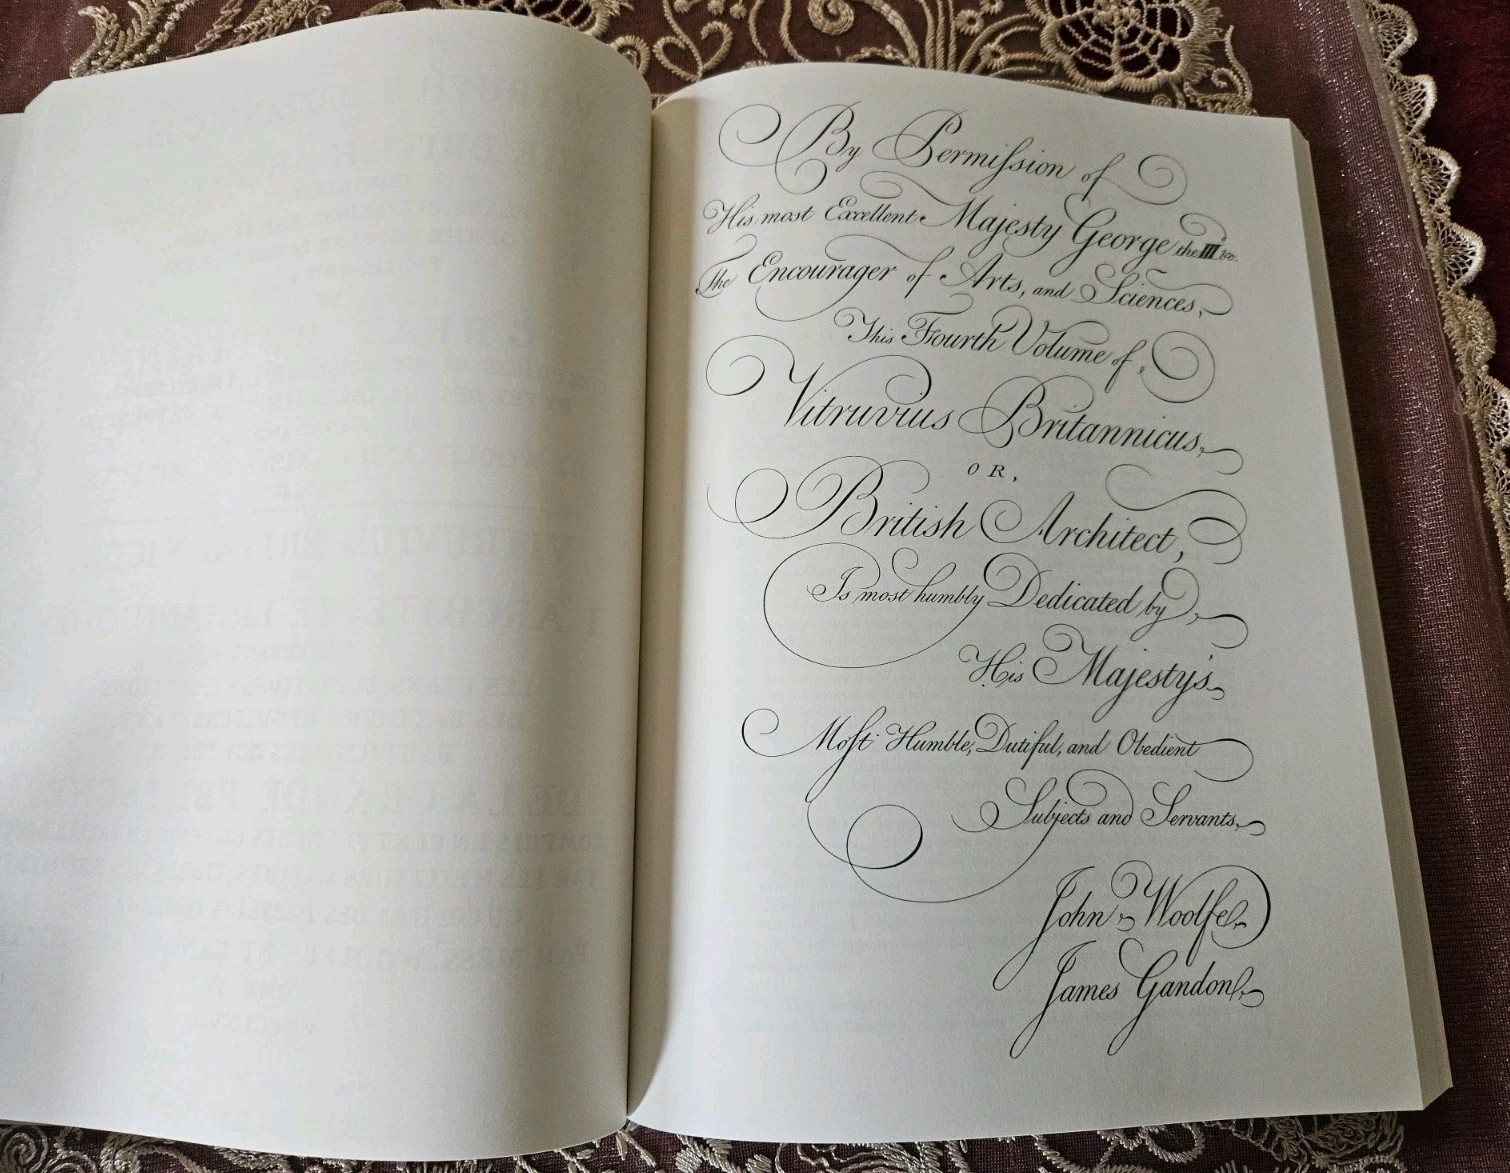 By Permiſsion of
His most Excellent Majesty George the III &c.
The Encourager of Arts, and Sciences,
This Fourth Volume of,
Vitruvius Britannicus,
OR,
British Architect,
Is most humbly Dedicated by,
His Majesty's
Moſt Humble, Dutiful, and Obedient
Subjects and Servants,
John Woolfe
James Gandon